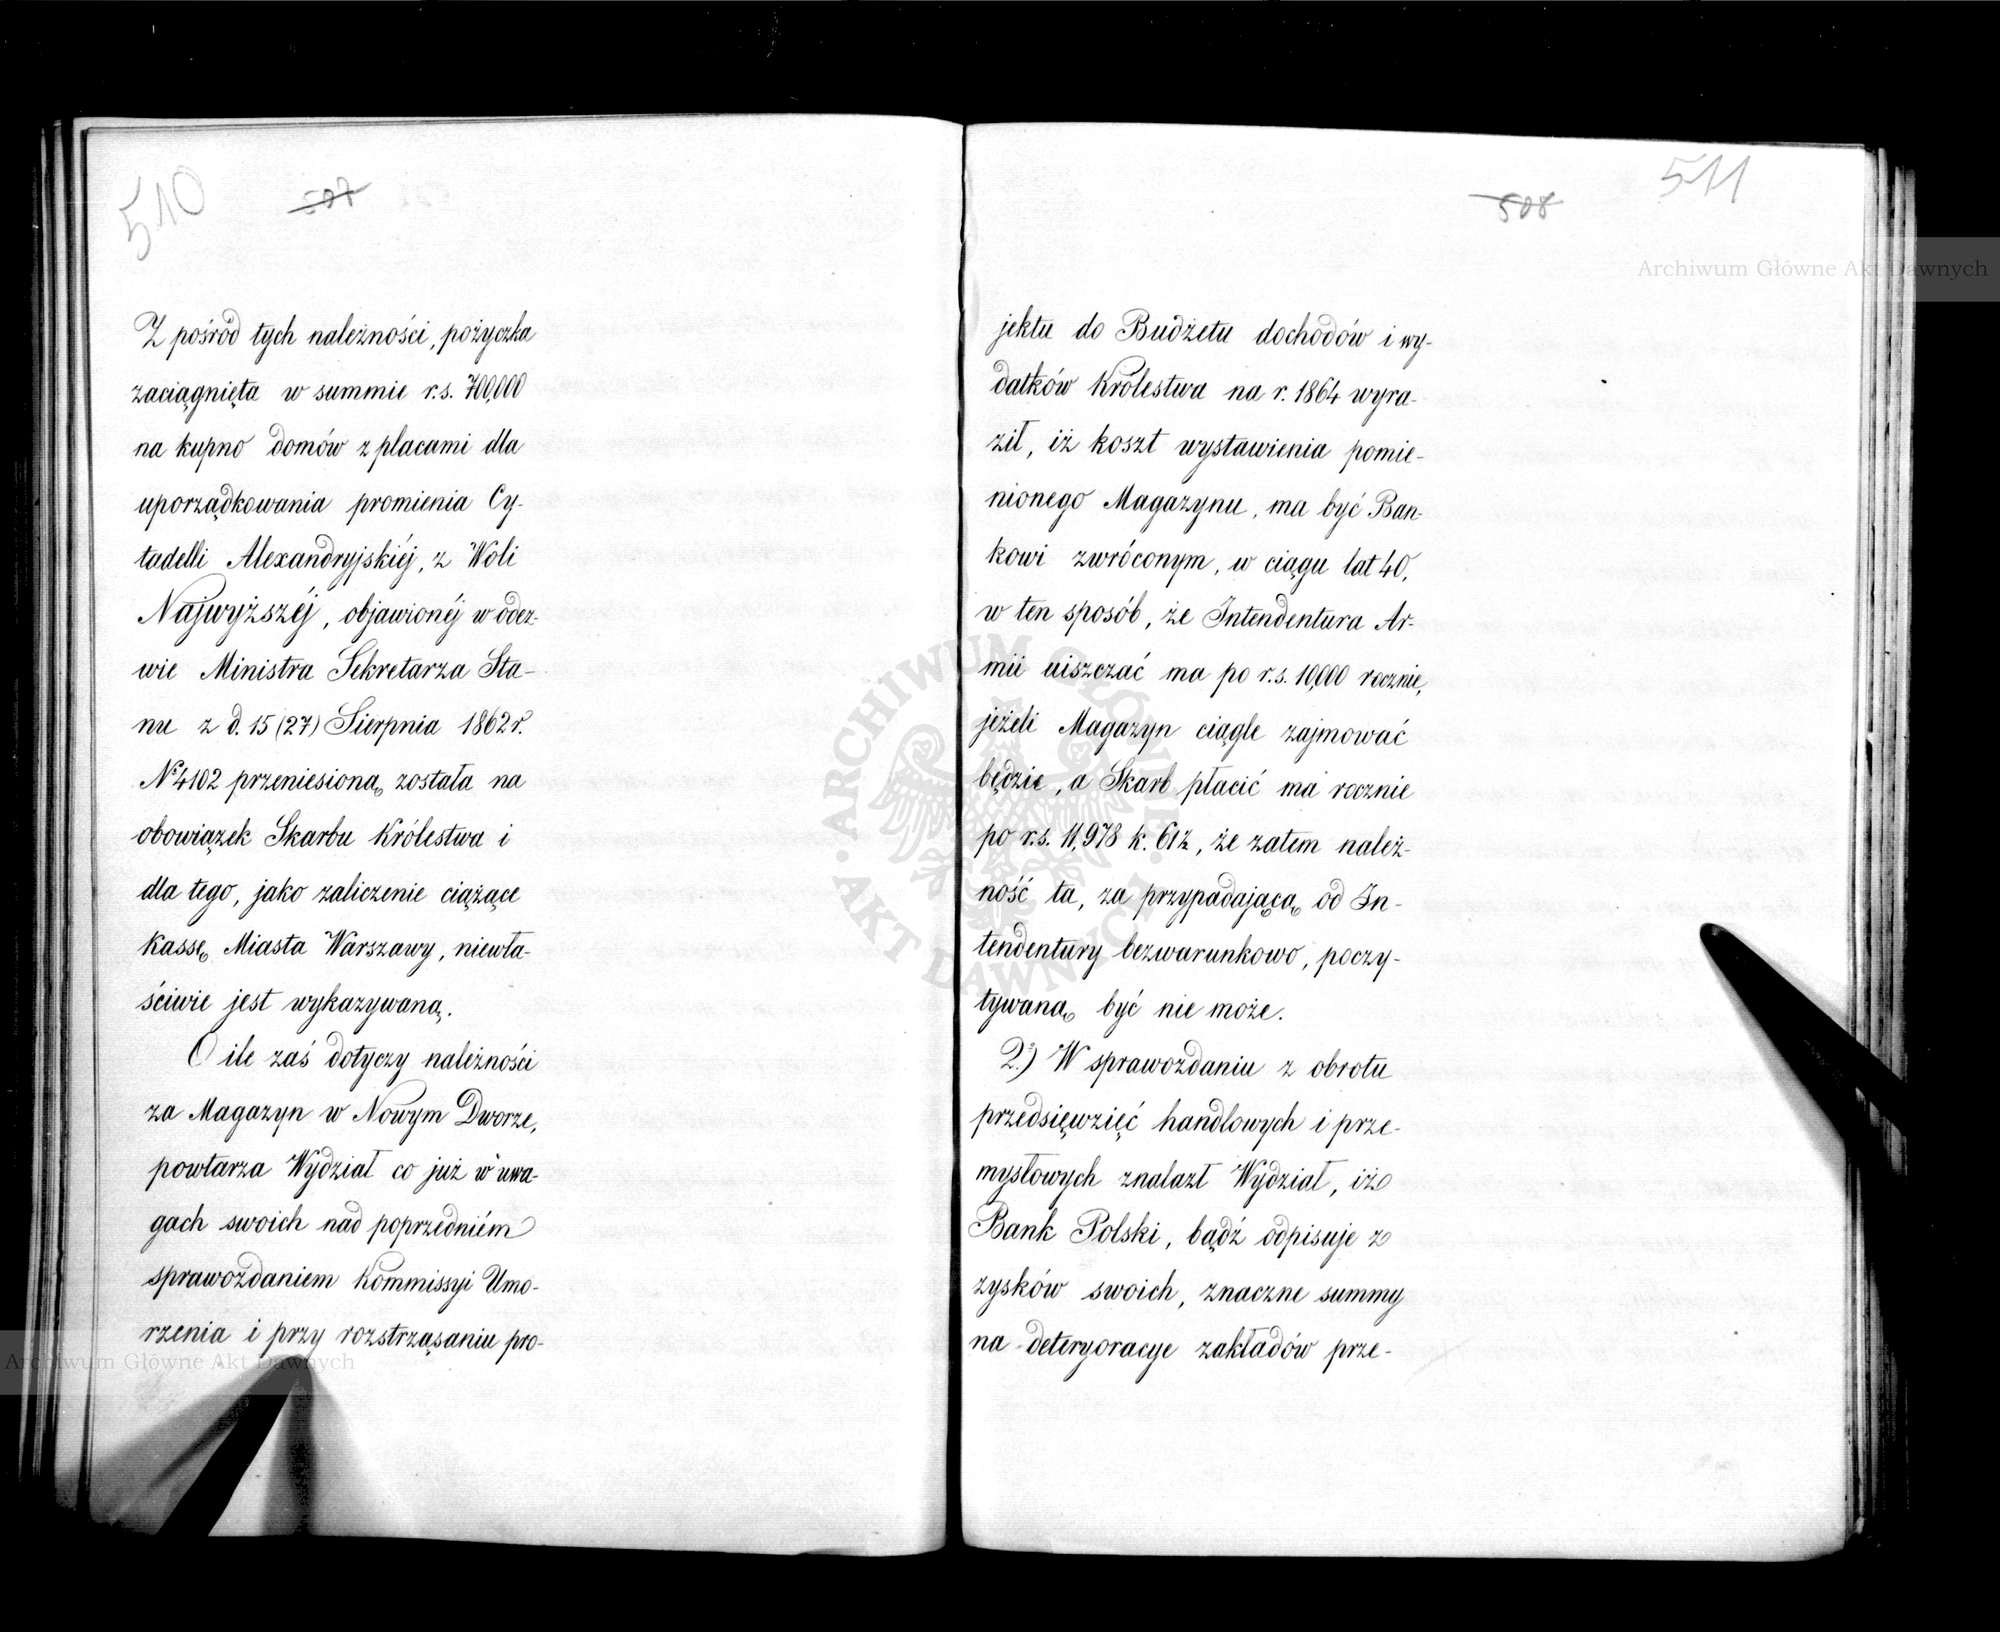 510
507
Z pośród tych należności, pożyczka
zaciągnięta w summie r.s. 700,000
na kupno domów z placami dla
uporządkowania promienia Cy-
tadelli Alexandryjskiéj, z Woli
Najwyższéj, objawionéj w odez-
wie Ministra Sekretarza Sta-
nu z d. 15 (27) Sierpnia 1862 r.
No 4102 przeniesioną została na
obowiązek Skarbu Królestwa i
dla tego, jako zaliczenie ciążące
Kassę Miasta Warszawy, niewła-
ściwie jest wykazywaną.
O ile zaś dotyczy należności
za Magazyn w Nowym Dworze,
powtarza Wydział co już w uwa-
gach swoich nad poprzedniém
sprawozdaniem Kommissyi Umo-
rzenia i przy rozstrząsaniu pro-
511
508
jektu do Budżetu dochodów i wy-
datków Królestwa na r. 1864 wyra-
ził, iż koszt wystawienia pomie-
nionego Magazynu, ma być Ban-
kowi zwróconym, w ciągu lat 40,
w ten sposób, że Intendentura Ar-
mii uiszczać ma po r.s. 10,000 rocznie,
jeżeli Magazyn ciągle zajmować
będzie, a Skarb płacić ma rocznie
po r.s. 11,978 k. 61½, że zatem należ-
ność ta, za przypadającą od In-
tendentury bezwarunkowo, poczy-
tywaną być nie może.
2.) W sprawozdaniu z obrotu
przedsięwzięć handlowych i prze-
mysłowych znalazł Wydział, iż
Bank Polski, bądź odpisuje z
zysków swoich, znaczne summy
na deteryoracye zakładów prze-
Archiwum Główne Akt Dawnych
Archiwum Główne Akt Dawnych
ARCHIWUM GŁÓWNE AKT DAWNYCH